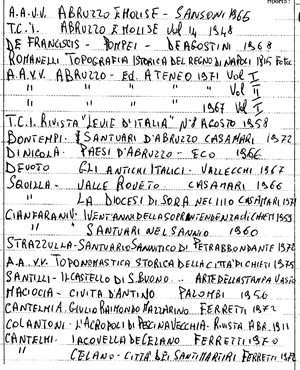 A.A.V.V. ABRUZZO E MOLISE - SANSONI 1966
T.C.I. ABRUZZO E MOLISE Vol 14 1948
DE FRANCISCIS - POMPEI - DE AGOSTINI 1968
ROMANELLI TOPOGRAFIA ISTORICA DEL REGNO DI NAPOLI 1815
A.A.V.V. ABRUZZO - Ed. ATENEO 1971 Vol I
" " " " Vol II
" " " 1967 Vol I
T.C.I. RIVISTA "LE VIE D'ITALIA" N° 8 AGOSTO 1958
BONTEMPI - SANTUARI D'ABRUZZO CASAMARI 1972
DI NICOLA - PAESI D'ABRUZZO - ECO 1966
DEVOTO GLI ANTICHI ITALICI - VALLECCHI 1967
SQUILLA - VALLE ROVETO CASAMARI 1966
" LA DIOCESI DI SORA NEL 1110 CASAMARI 1971
CIANFARANI VENT'ANNI DELLA SOPRINTENDENZA DI CHIETI 1959
" SANTUARI NEL SANNIO 1960
STRAZZULLA - SANTUARIO SANNITICO DI PIETRABBONDANTE
A.A.V.V. TOPONOMASTICA STORICA DELLA CITTÀ DI CHIETI 1975
SANTILLI - IL CASTELLO DI S. BUONO ... ARTE DELLA STAMPA VASTO
MACIOCIA - CIVITA D'ANTINO PALOMBI 1956
CANTELMI A. GIULIO RAIMONDO MAZZARINO FERRETTI 1972
COLANTONI - L'ACROPOLI DI PESCINA VECCHIA - RIVISTA ABR. 1911
CANTELMI - IACOVELLA DE CELANO FERRETTI 1970
" CELANO - CITTÀ DEI SANTI MARTIRI FERRETTI